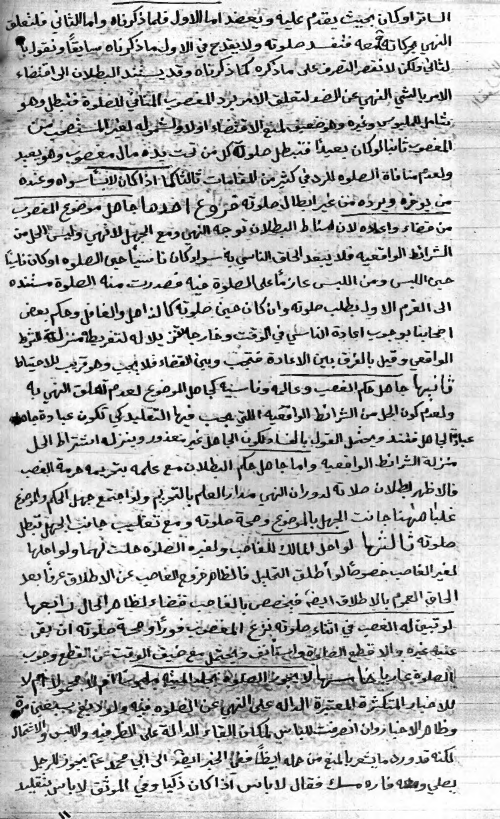 الساتر او كان بحيث يقدم عليه و يعضد اما الاول فلما ذكرناه واما الثاني فلتعلق
النهي بحركاته فتفسد صلوته ولا يقدح في الاول ما ذكرناه سابقا و نقول با
لثاني ولكن لا نقصر التصرف على ما ذكره كما ذكرناه وقد يستند البطلان الى اقتضاء
الامر بالشي النهي عن الضد لتعلق الامر برد المغصوب المنافي للصلوة فتبطل وهو
شامل للملبوس وغيره وهو ضعيف لمنع الاقتضاء اولا و لشموله لغير المستصحب من
المغصوب ثانيا لو كان بعيدا فتبطل صلوة كل من تحت يده مال مغصوب وهو بعيد
ولعدم منافاة الصلوة للرد في كثير من المقامات ثالثا كما اذا كان لابسا سواه وعنده
من يوخره و يرده من غير ابطال صلوته فروع احدها جاهل موضوع الغصب
من قضاء واعاده لان مناط البطلان توجه النهي ومع الجهل لا نهي وليس الحل من
الشرائط الواقعيه فلا يبعد الحاق الناسي به سواء كان ناسيا حين الصلوه او كان ناسيا
حين اللبس ومن اللبس عازما على الصلوة فيه فصدرت منه الصلوة مستنده
الى العزم الاول بطلت صلوته وان كان حين صلوته كالذاهل والغافل وحكم بعض
اصحابنا بوجوب اعادة الناسي في الوقت وخارجه تنزيلا له لتفريطه منزلة الشرط
الواقعي و قيل بالفرق بين الاعادة فتجب وبين القضاء فلا يجب وهو قريب للاحتياط
ثانيها جاهل حكم الغصب وعالمه وناسيه كجاهل الموضوع لعدم تعلق النهي به
ولعدم كون الحل من الشرائط الواقعيه التي يجب فيها التقليد كي تكون عبادة جاهل
الجاهل فتفسد و يحتمل القول بالفساد لكون الجاهل غير معذور و ينزله اشتراط الحل
منزلة الشرائط الواقعيه واما جاهل حكم البطلان مع علمه بتحريمه حرمة الغصب
فالاظهر بطلان صلاته لدوران النهي مدار العلم بالتحريم ولو اجتمع جهل الحكم والموضوع
غلبنا هنا جانب الجهل بالموضوع وصحة صلوته و مع تغليب جانب الجهل تبطل
صلوته ثالثها لو احل المالك للغاصب ولغيره الصلوه حلت لهما ولو احلها
لغير الغاصب خصوصا لو اطلق التحليل فالظاهر خروج الغاصب عن الاطلاق عرفا بعد
الحاق العموم بالاطلاق ايضا فيخصص بالغاصب قضاء لظاهر الحال رابعها
لو تبين له الغصب في اثناء صلوته نزع المغصوب فورا وصحة صلوته ان بقى
عنده غيره والا قطع الصلوة و استأنف و يحتمل مع ضيق الوقت عن القطع وجوب
الصلوة عاريا خامسها لا يجوز الصلوة بجلد الميته
للاخبار المتكثرة المعتبرة الداله على النهي عن الصلوه فيه ولو لا يدبغ سبعين مرة
وظاهر الاخبار وان انصرفت للباس لمكان الفاء الدالة على الظرفيه واللبس والاشتمال
لكنه قد ورد ما يشعر بالمنع من حمله ايضا ففي الخبر الى ابي محمد يجوز للرجل
يصلي ومعه فاره مسك فقال لا باس اذا كان ذكيا وفي الموثق لا باس بتقليد